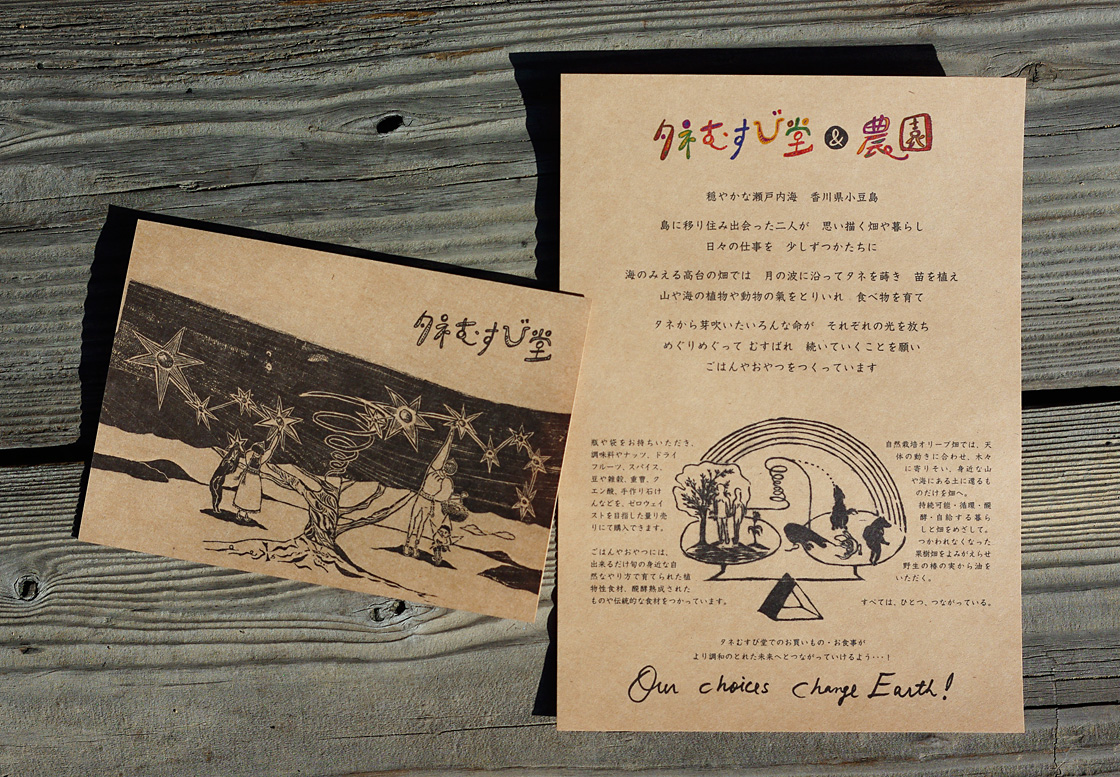 タネむすび堂
タネむすび堂&農園
穏やかな瀬戸内海　香川県小豆島
島に移り住み出会った二人が　思い描く畑や暮らし
日々の仕事を　少しずつかたちに
海のみえる高台の畑では　月の波に沿ってタネを蒔き　苗を植え
山や海の植物や動物の氣をとりいれ　食べ物を育て
タネから芽吹いたいろんな命が　それぞれの光を放ち
めぐりめぐって むすばれ　続いていくことを願い
ごはんやおやつをつくっています
瓶や袋をお持ちいただき、
調味料やナッツ、ドライ
フルーツ、スパイス、
豆や雑穀、重曹、ク
エン酸、手作り石け
んなどを、ゼロウェイ
ストを目指した量り売
りにて購入できます。
ごはんやおやつには、
出来るだけ旬の身近な自
然なやり方で育てられた植
物性食材、醗酵熟成された
ものや伝統的な食材をつかっています。
自然栽培オリーブ畑では、天
体の動きに合わせ、木々
に寄りそい、身近な山
や海にある土に還るも
のだけを畑へ。
持続可能・循環・醗
酵・自給する暮ら
しと畑をめざして。
つかわれなくなった
果樹畑をよみがえらせ
野生の椿の実から油を
いただく。
すべては、ひとつ、つながっている。
タネむすび堂でのお買いもの・お食事が
より調和のとれた未来へとつながっていけるよう・・・！
Our choices change Earth!